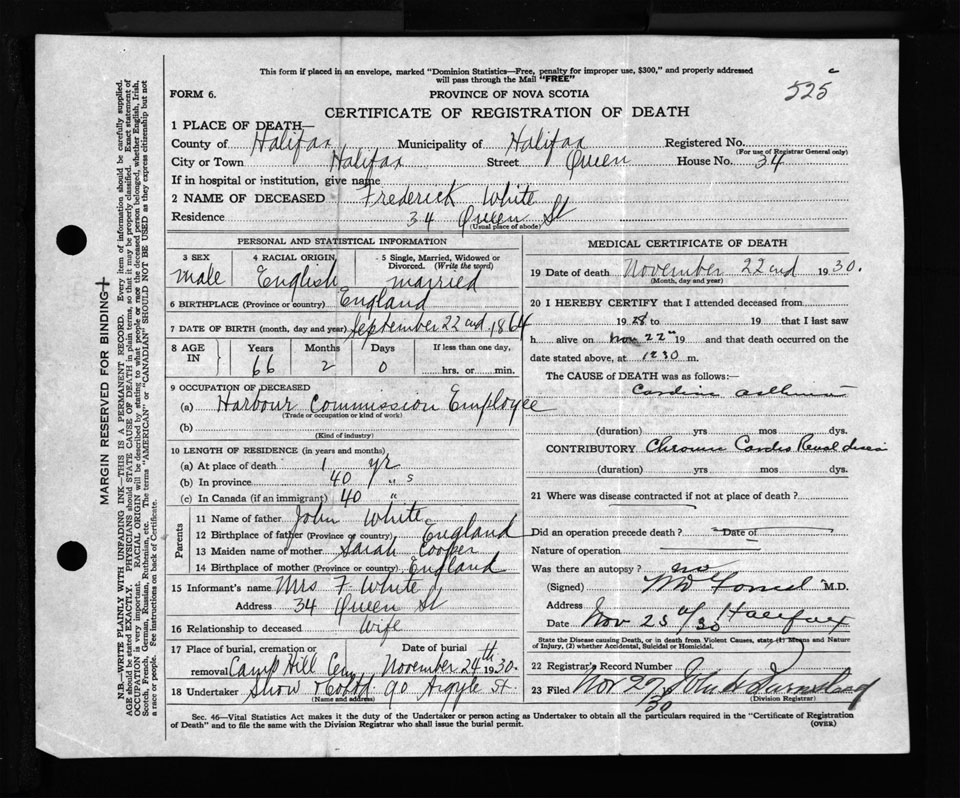 This form if placed in an envelope, marked "Dominion Statistics—Free, penalty for improper use, $300," and properly addressed
will pass through the Mail "FREE"
525
FORM 6.
PROVINCE OF NOVA SCOTIA
CERTIFICATE OF REGISTRATION OF DEATH
1 PLACE OF DEATH—
County of Halifax Municipality of Halifax Registered No.
(For use of Registrar General only)
City or Town Halifax Street Queen House No. 34
If in hospital or institution, give name
2 NAME OF DECEASED Frederick White
Residence 34 Queen St
(Usual place of abode)
PERSONAL AND STATISTICAL INFORMATION
3 SEX male
4 RACIAL ORIGIN English
5 Single, Married, Widowed or Divorced. (Write the word) married
6 BIRTHPLACE (Province or country) England
7 DATE OF BIRTH (month, day and year) September 22nd 1864
8 AGE IN Years 66 Months 2 Days 0 If less than one day, hrs. or min.
9 OCCUPATION OF DECEASED
(a) Harbour Commission Employee
(Trade or occupation or kind of work)
(b)
(Kind of industry)
10 LENGTH OF RESIDENCE (in years and months)
(a) At place of death 1 yr
(b) In province 40 " s
(c) In Canada (if an immigrant) 40 "
Parents
11 Name of father John White
12 Birthplace of father (Province or country) England
13 Maiden name of mother Sarah Cooper
14 Birthplace of mother (Province or country) England
15 Informant's name Mrs F. White
Address 34 Queen St
16 Relationship to deceased Wife
17 Place of burial, cremation or removal Camp Hill Cem Date of burial November 24th 1930.
18 Undertaker Snow & Co Ltd 90 Argyle St.
(Name and address)
MEDICAL CERTIFICATE OF DEATH
19 Date of death November 22nd 1930.
(Month, day and year)
20 I HEREBY CERTIFY that I attended deceased from
1928 to 19 that I last saw
h alive on Nov 22" 19 and that death occurred on the
date stated above, at 1230 m.
The CAUSE of DEATH was as follows:—
Cardiac asthma
(duration) yrs mos dys.
CONTRIBUTORY Chronic Cardio Renal disease
(duration) yrs mos dys.
21 Where was disease contracted if not at place of death?
Did an operation precede death? Date of
Nature of operation
Was there an autopsy? no
(Signed) M.D.
Address Halifax
Date Nov 23 /30
State the Disease causing Death, or in death from Violent Causes, state (1) Means and Nature
of Injury, (2) whether Accidental, Suicidal or Homicidal.
22 Registrar's Record Number
23 Filed Nov 27/30 John
(Division Registrar)
Sec. 46—Vital Statistics Act makes it the duty of the Undertaker or person acting as Undertaker to obtain all the particulars required in the "Certificate of Registration
of Death" and to file the same with the Division Registrar who shall issue the burial permit. (OVER)
MARGIN RESERVED FOR BINDING
N.B.—WRITE PLAINLY WITH UNFADING INK—THIS IS A PERMANENT RECORD. Every item of information should be carefully supplied.
AGE should be stated EXACTLY. PHYSICIANS should STATE CAUSE OF DEATH in plain terms, so that it may be properly classified. Exact statement of
OCCUPATION is very important. RACIAL ORIGIN will be described by stating to what people or race the deceased person belonged, whether English, Irish,
Scotch, French, German, Russian, Ruthenian, etc. The terms "AMERICAN" or "CANADIAN" SHOULD NOT BE USED as they express citizenship but not
a race or people. See instructions on back of Certificate.